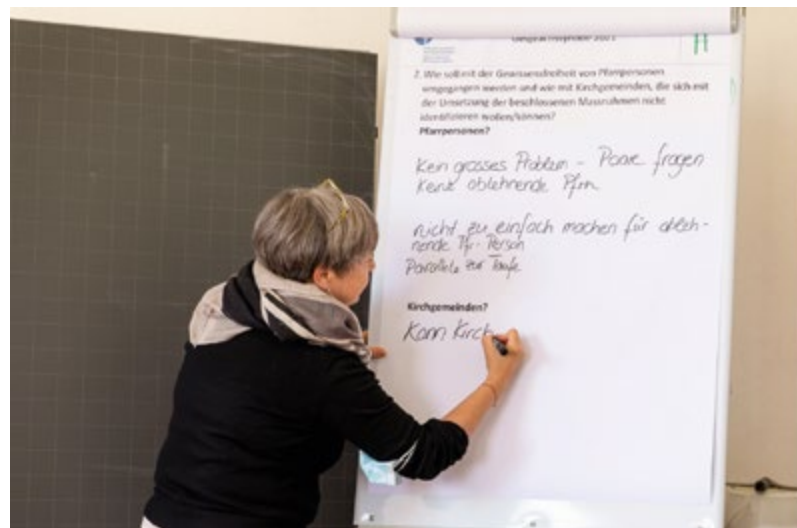 Gesprächssynode 2021
2. Wie soll mit der Gewissensfreiheit von Pfarrpersonen
umgegangen werden und wie mit Kirchgemeinden, die sich mit
der Umsetzung der beschlossenen Massnahmen nicht
identifizieren wollen/können?
Pfarrpersonen?
Kein grosses Problem - Paare fragen
keine ablehnende Pfrn
nicht zu einfach machen für ableh-
nende Pfr.-Person
Parallele zur Taufe
Kirchgemeinden?
Kann Kirch